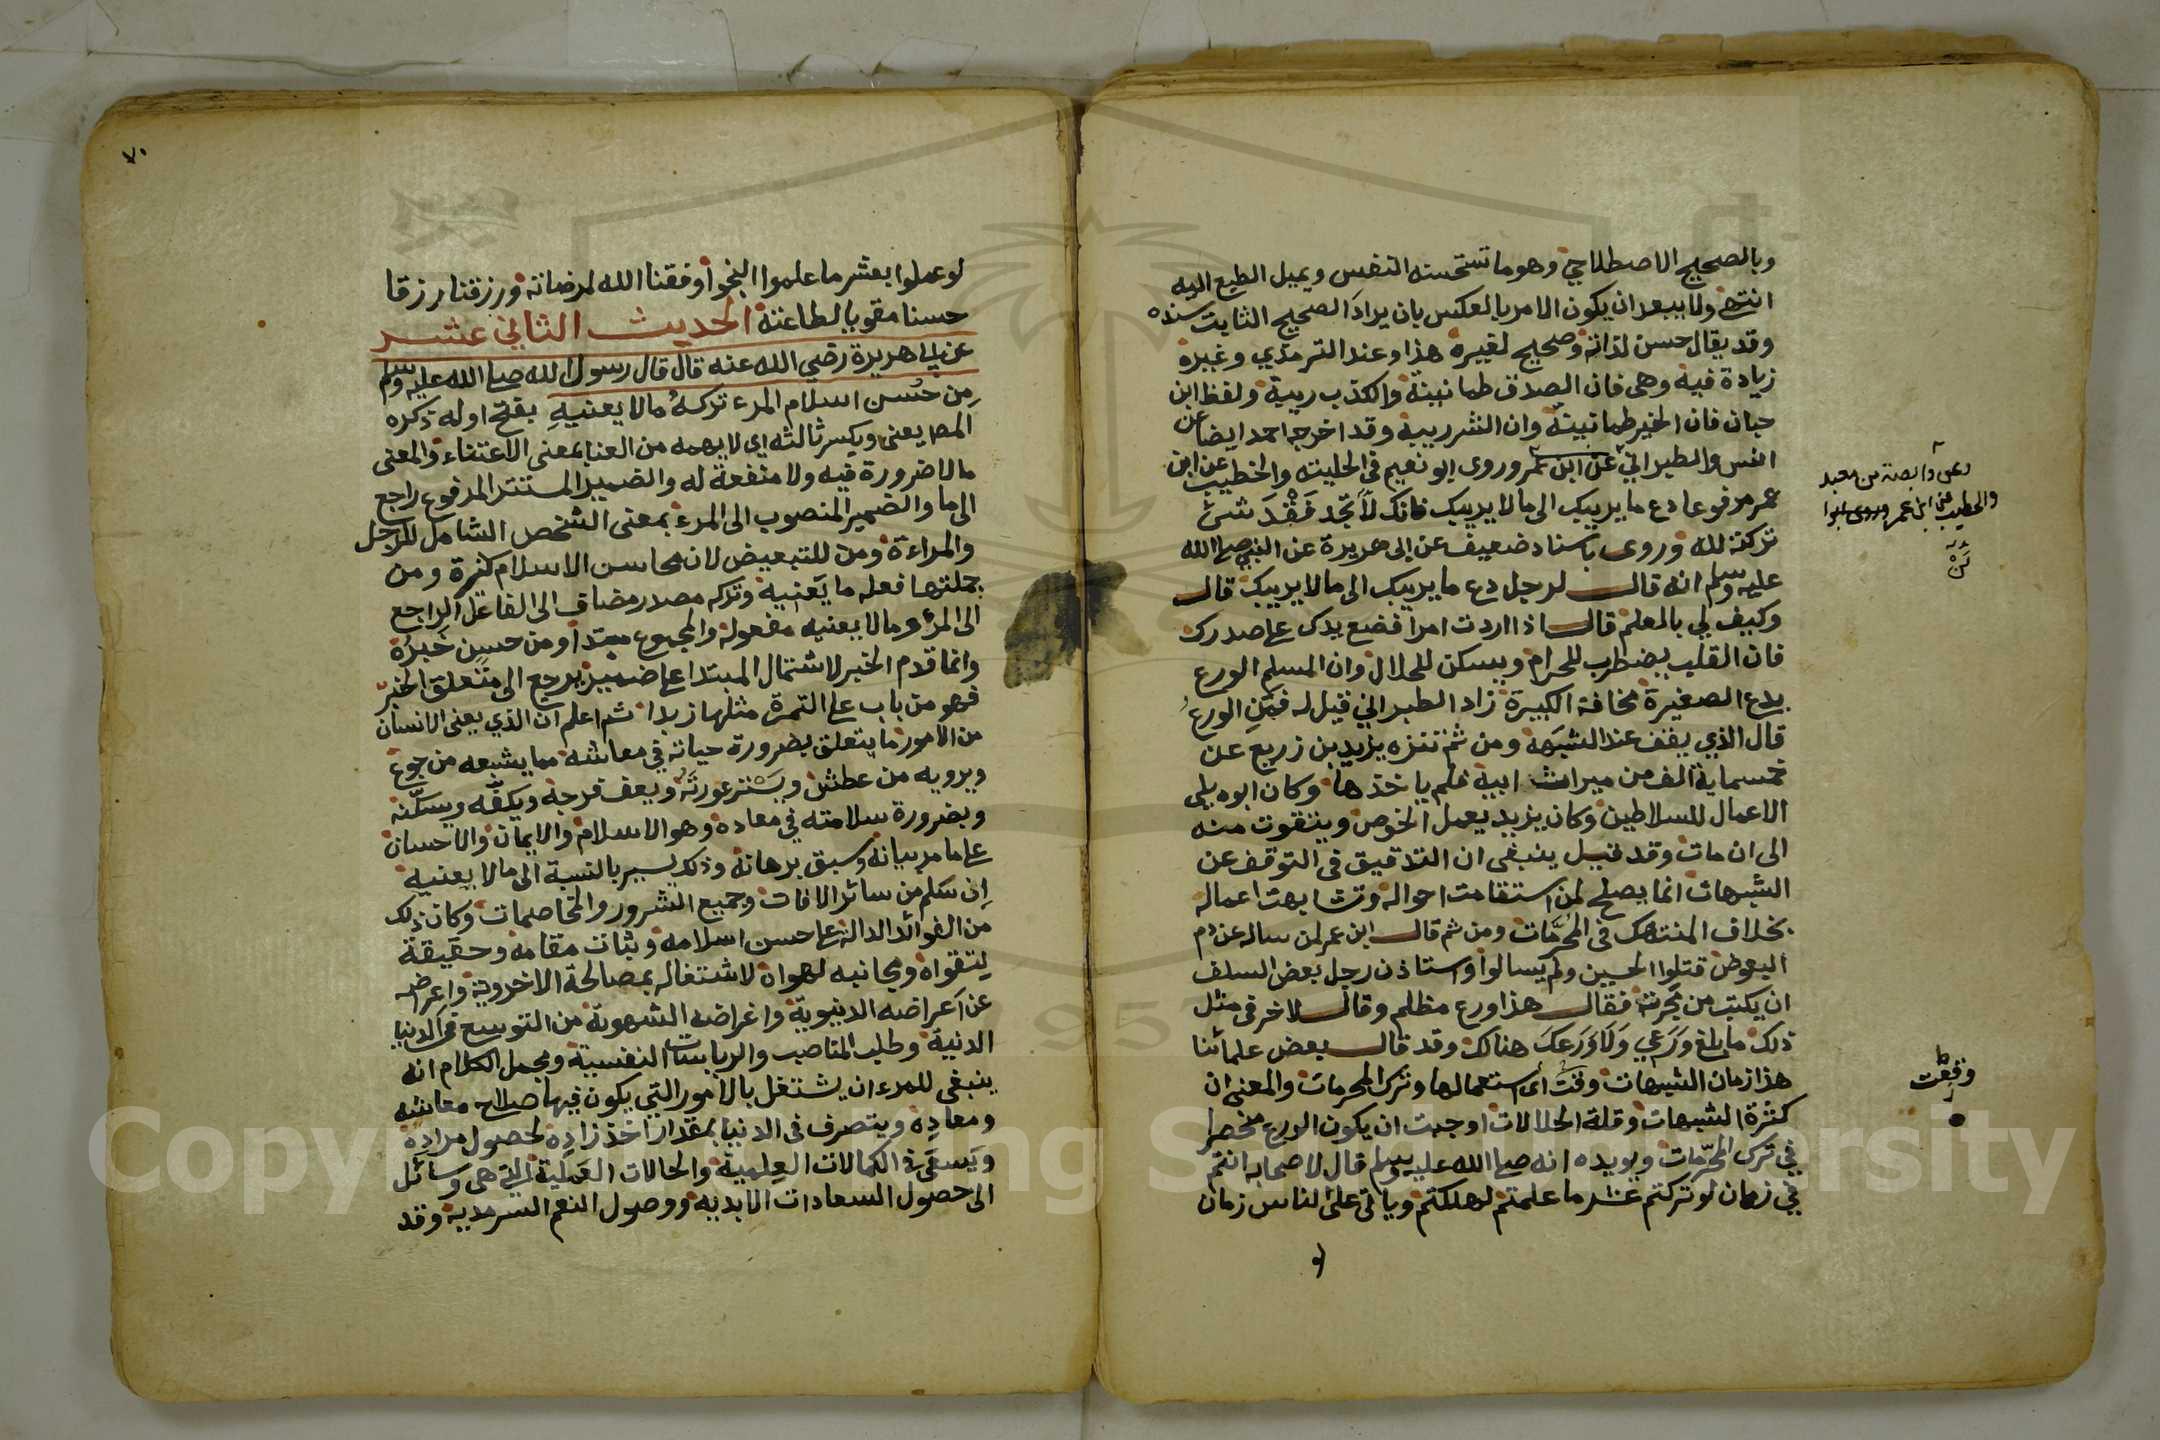 وبالصحيح الاصطلاحي وهو ما تستحسنه النفس ويميل الطبع اليه
انتهى ولا يبعد ان يكون الامر بالعكس بان يراد الصحيح الثابت سنده
وقد يقال حسن لذاته وصحيح لغيره هذا وعند الترمذي وغيره
زيادة فيه وهي فان الصدق طمانينة والكذب ريبة ولفظ ابن
حبان فان الخير طمانينة وان الشر ريبة وقد اخرجه احمد ايضا عن
انس والطبراني عن ابن عمر وروى ابو نعيم في الحلية والخطيب عن ابن
عمر مرفوعا دع ما يريبك الى ما لا يريبك فانك لا تجد فقد شئ
تركته لله وروى باسناد ضعيف عن ابي هريرة عن النبي صلى الله
عليه وسلم انه قال لرجل دع ما يريبك الى ما لا يريبك قال
وكيف لي بالعلم قال اذا اردت امرا فضع يدك على صدرك
فان القلب يضطرب للحرام ويسكن للحلال وان المسلم الورع
يدع الصغيرة مخافة الكبيرة زاد الطبراني قيل له فمن الورع
قال الذي يقف عند الشبهة ومن ثم تنزه يزيد بن زريع عن
خمسماية الف من ميراث ابيه فلم ياخذها وكان ابوه يلي
الاعمال للسلاطين وكان يزيد يعمل الخوص ويتقوت منه
الى ان مات وقد قيل ينبغي ان التدقيق في التوقف عن
الشبهات انما يصلح لمن استقامت احواله وتشابهت اعماله
بخلاف المنتهك في المحرمات ومن ثم قال ابن عمر لمن ساله عن دم
البعوض قتلوا الحسين ولم يسالوا واستاذن رجل بعض السلف
ان يكتب من محبرته فقال هذا ورع مظلم وقال لاخر في مثل
ذلك ما بلغ ورعي ولا ورعك هنالك وقد قال بعض علمائنا
هذا زمان الشبهات وقت اى استعمالها وترك المحرمات والمعنى ان
كثرة الشبهات وقلة الحلالات اوجبت ان يكون الورع منحصرا
في ترك المحرمات ويويده انه صلى الله عليه وسلم قال لاصحابه انتم
في زمان لو تركتم عشر ما علمتم لهلكتم وياتي على الناس زمان
لو
وعن وابصة بن معبد
والخطيب عن ابن عمر وروى ابو
وقعت
٧٠
لو عملوا بعشر ما علموا لنجوا وفقنا الله لمرضاته ورزقنا رزقا
حسنا مقويا لطاعته الحديث الثاني عشر
عن ابي هريرة رضي الله عنه قال قال رسول الله صلى الله عليه وسلم
من حسن اسلام المرء تركه ما لا يعنيه بفتح اوله ذكره
المص يعني ويكسر ثالثه اي لا يهمه من العنا بمعنى الاعتناء والمعنى
ما لا ضرورة فيه ولا منفعة له والضمير المستتر المرفوع راجع
الى ما والضمير المنصوب الى المرء بمعنى الشخص الشامل للرجل
والمراءة ومن للتبعيض لان محاسن الاسلام كثيرة ومن
جملتها فعله ما يعنيه وتركه مصدر مضاف الى الفاعل الراجع
الى المرء وما لا يعنيه مفعوله والمجموع مبتدا ومن حسن خبره
وانما قدم الخبر لاشتمال المبتدا على ضمير يرجع الى متعلق الخبر
فهو من باب على التمرة مثلها زبدا ثم اعلم ان الذي يعني الانسان
من الامور ما يتعلق بضرورة حياته في معاشه مما يشبعه من جوع
ويرويه من عطش ويستر عورته ويعف فرجه ويكفه ويسكنه
وبضرورة سلامته في معاده وهو الاسلام والايمان والاحسان
على ما مر بيانه وسبق برهانه وذلك يسير بالنسبة الى ما لا يعنيه
ان سلم من سائر الافات وجميع الشرور والمخاصمات وكان ذلك
من الفوائد الدالة على حسن اسلامه وثبات مقامه وحقيقة
لتقواه ومجانبه لهواه لاشتغاله بمصالحه الاخروية واعراضه
عن اعراضه الدنيوية واغراضه الشهوية من التوسع في الدنيا
الدنية وطلب المناصب والرياسات النفسية ومجمل الكلام انه
ينبغي للمرء ان يشتغل بالامور التي يكون فيها صلاح معاشه
ومعاده ويتصرف في الدنيا بمقدار اخذ زاده لحصول مراده
ويسعى في الكمالات العلمية والحالات العملية التي هي وسائل
الى حصول السعادات الابدية ووصول النعم السرمدية وقد
Copyright © King Saud University
1957